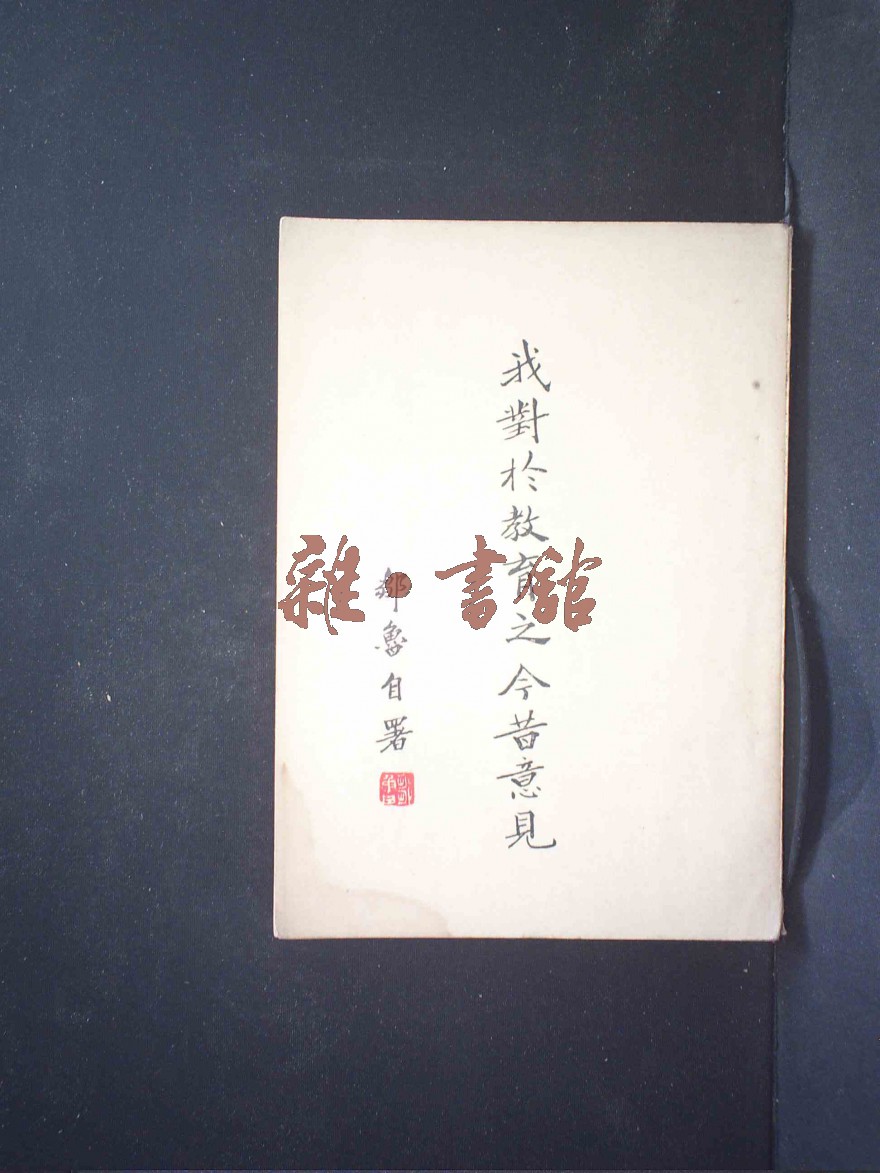 我對於教育之今昔意見
鄒魯自署
雜·書館